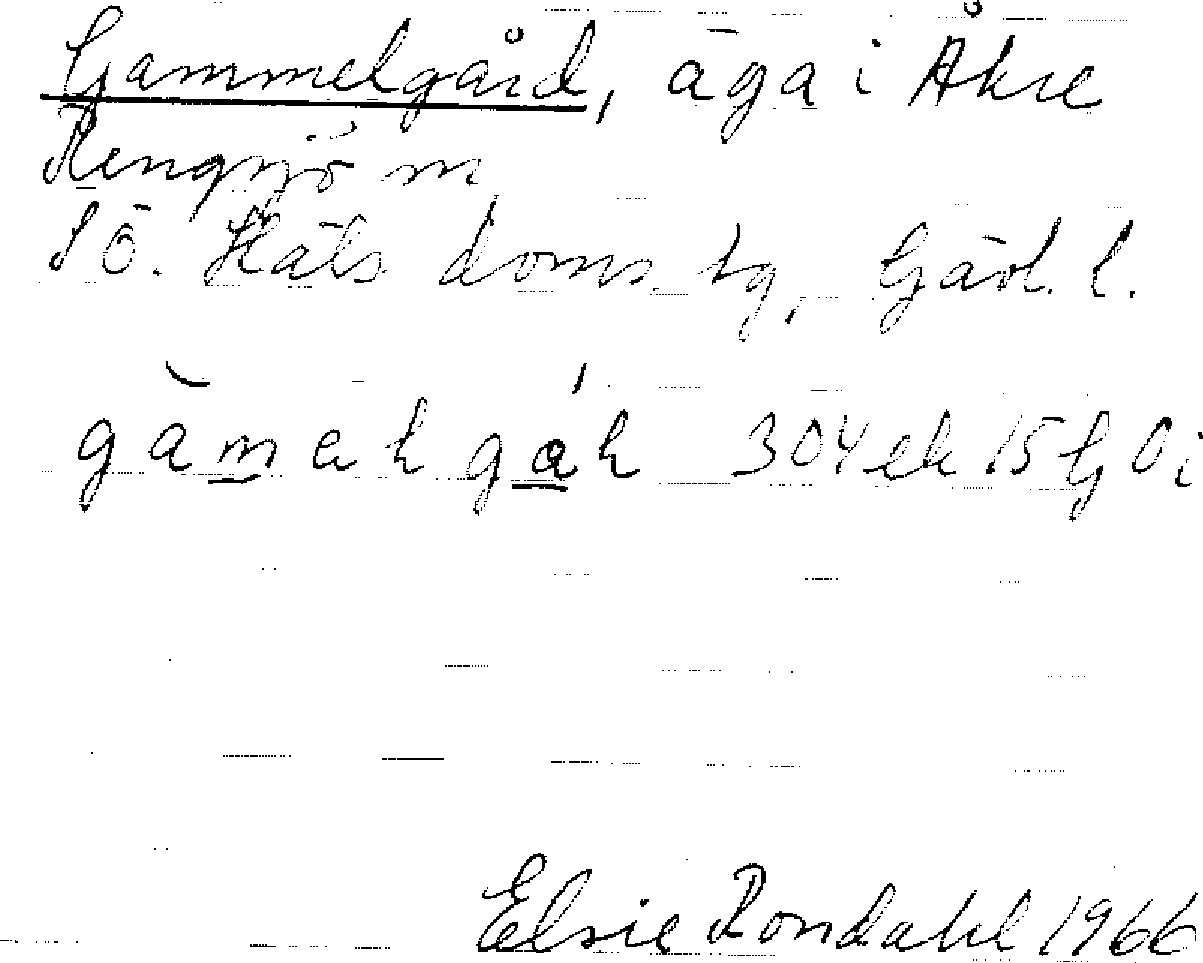 Gammelgård, äga i Åkre
Rengsjö sn
SÖ. Häls doms. tg, Gävl. l.
gamah gah 304 ek 15 G 0 i
Elsie Rondahl 1966